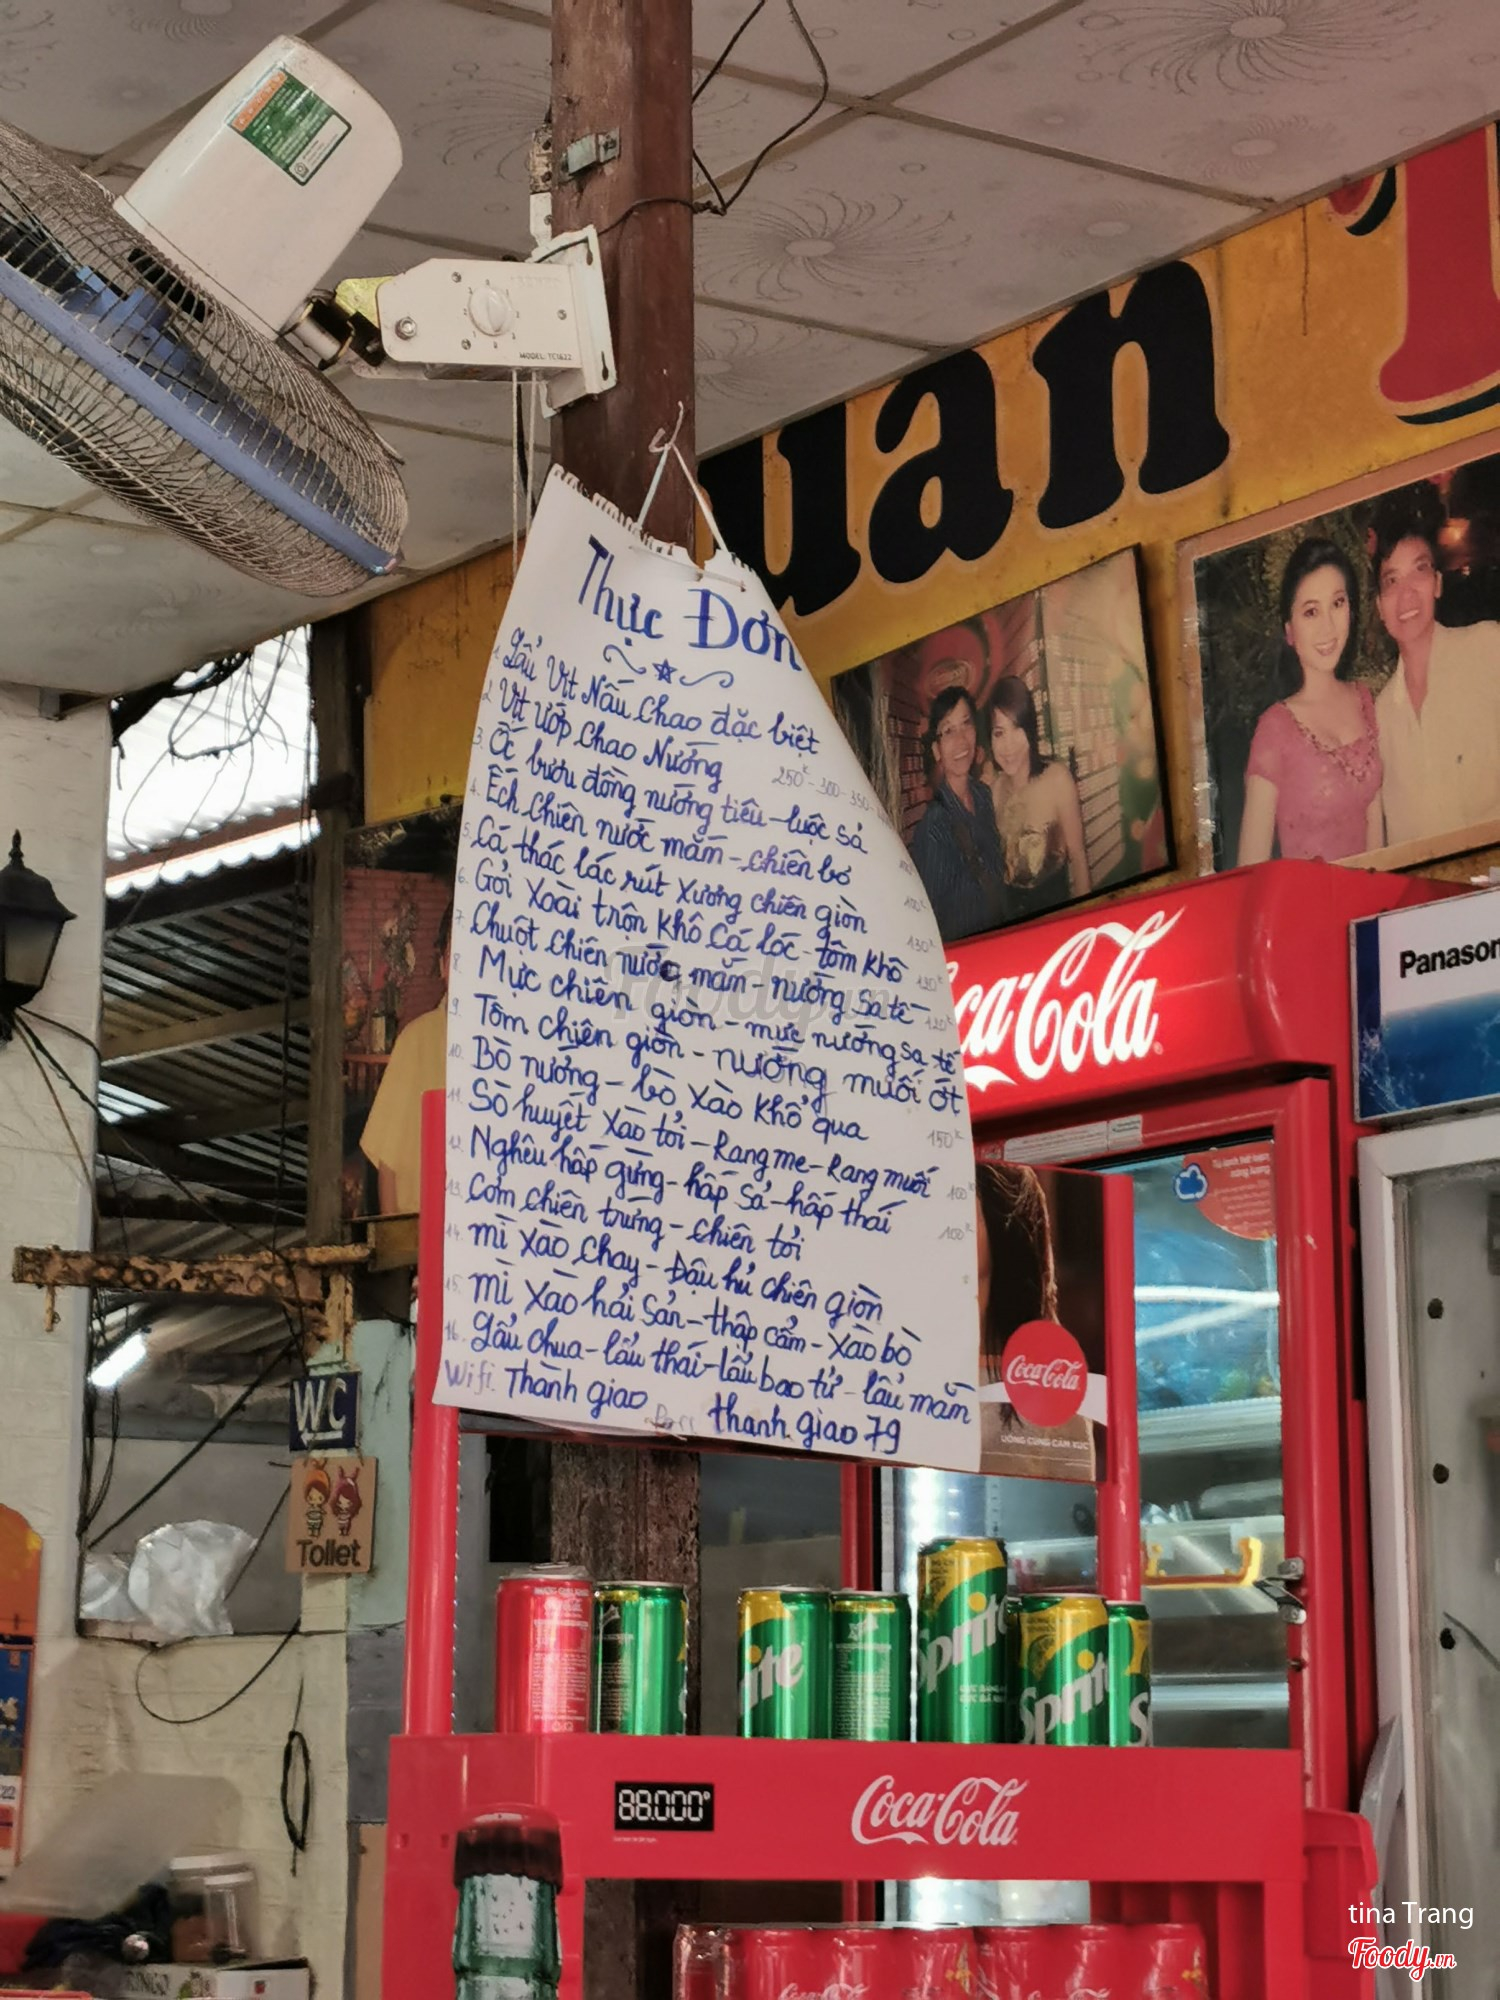 MODEL: TC1622
uan
Thực Đơn
1. Lẩu Vịt Nấu Chao đặc biệt
2. Vịt ướp Chao Nướng 250K - 300 - 350
3. Ốc bươu đồng nướng tiêu - luộc sả
4. Ếch chiên nước mắm - chiên bơ 100K
5. Cá thác lác rút xương chiên giòn 130K
6. Gỏi Xoài trộn Khô Cá lóc - tôm khô 120K
7. Chuột chiên nước mắm - nướng sa tế 120K
8. Mực chiên giòn - mực nướng sa tế
9. Tôm chiên giòn - nướng muối ớt
10. Bò nướng - bò xào khổ qua 150K
11. Sò huyết xào tỏi - Rang me - Rang muối 100K
12. Nghêu hấp gừng - hấp sả - hấp thái 100K
13. Cơm chiên trứng - chiên tỏi
14. mì xào chay - Đậu hủ chiên giòn
15. mì xào hải sản - thập cẩm - xào bò
16. Lẩu chua - lẩu thái - lẩu bao tử - lẩu mắm
Wifi. Thành giao Pass thanh giao 79
Foody.vn
ca-Cola
Panason
WC
Toilet
Coca-Cola
UỐNG CÙNG CẢM XÚC
ite
Sprite
Sprit
S
88.000°
Coca-Cola
Coca-Cola
tina Trang
Foody.vn